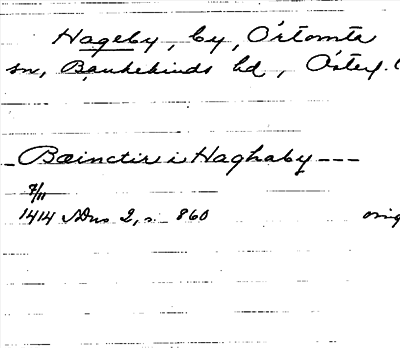 Hageby, by, Örtomta
sn, Bankekinds hd, Österg.
Bæinctir i Haghaby ---
7/11
1414 SDns 2, s. 860 orig